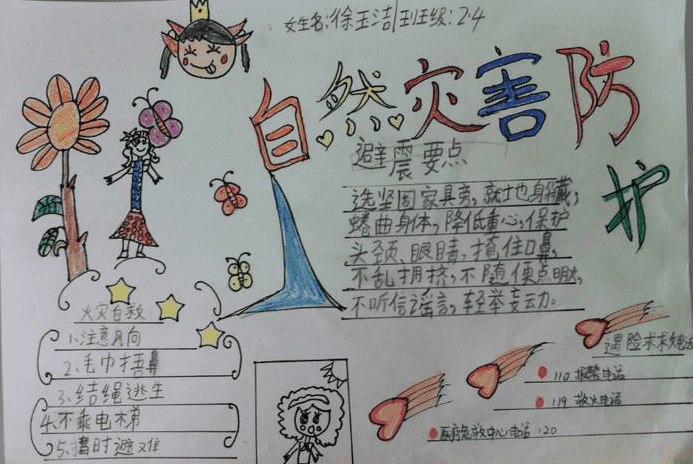 女生名:徐玉洁 班级:2.4
自然灾害防护
避震要点
选坚固家具旁,就地身藏,
蜷曲身体,降低重心,保护
头颈、眼睛,掩住口鼻,
不乱拥挤,不随便点明火,
不听信谣言,轻举妄动。
火灾自救
1.注意风向
2.毛巾捂鼻
3.结绳逃生
4.不乘电梯
5.搭时避难
遇险
110 报警电话
119 救火电话
医疗急救中心电话 120